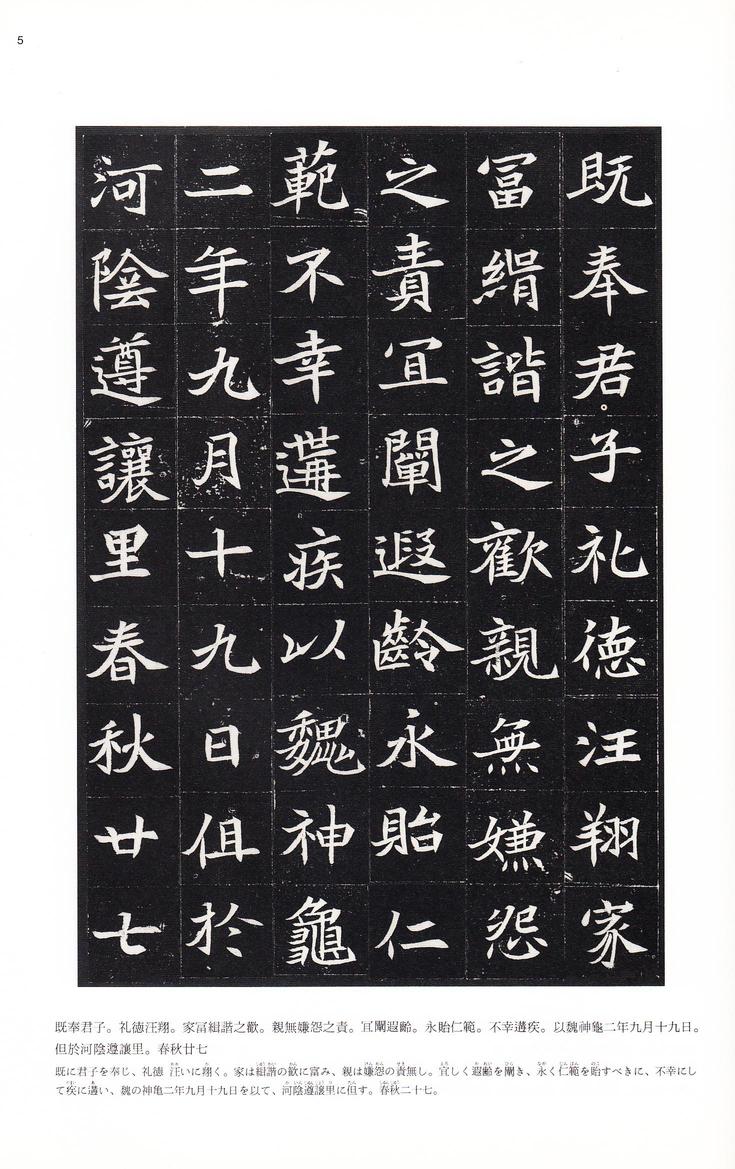 5
既奉君子礼徳汪翔家
冨緝諧之歡親無嫌怨
之責冝闡遐齡永貽仁
範不幸遘疾以魏神龜
二年九月十九日伹於
河陰遵讓里春秋廿七
既奉君子。礼徳汪翔。家冨緝諧之歡。親無嫌怨之責。冝闡遐齡。永貽仁範。不幸遘疾。以魏神龜二年九月十九日。
伹於河陰遵讓里。春秋廿七
既に君子を奉じ、礼徳 汪いに翔く。家は緝諧の歓に富み、親は嫌怨の責無し。宜しく遐齢を闡き、永く仁範を貽すべきに、不幸にし
て疾に遘い、魏の神亀二年九月十九日を以て、河陰遵讓里に伹す。春秋二十七。